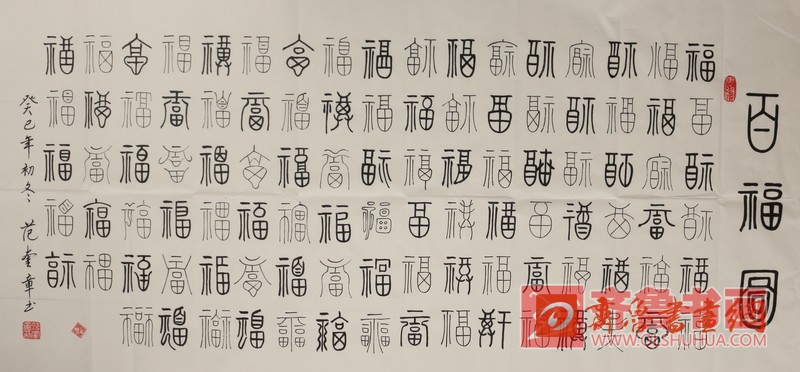 百福圖
福福福福福福福福福福福福福福福福福
福福福福福福福福福福福福福福福福福
福福福福福福福福福福福福福福福福福
福福福福福福福福福福福福福福福福福
福福福福福福福福福福福福福福福福福
福福福福福福福福福福福福福福福
癸巳年初冬 范奎章书